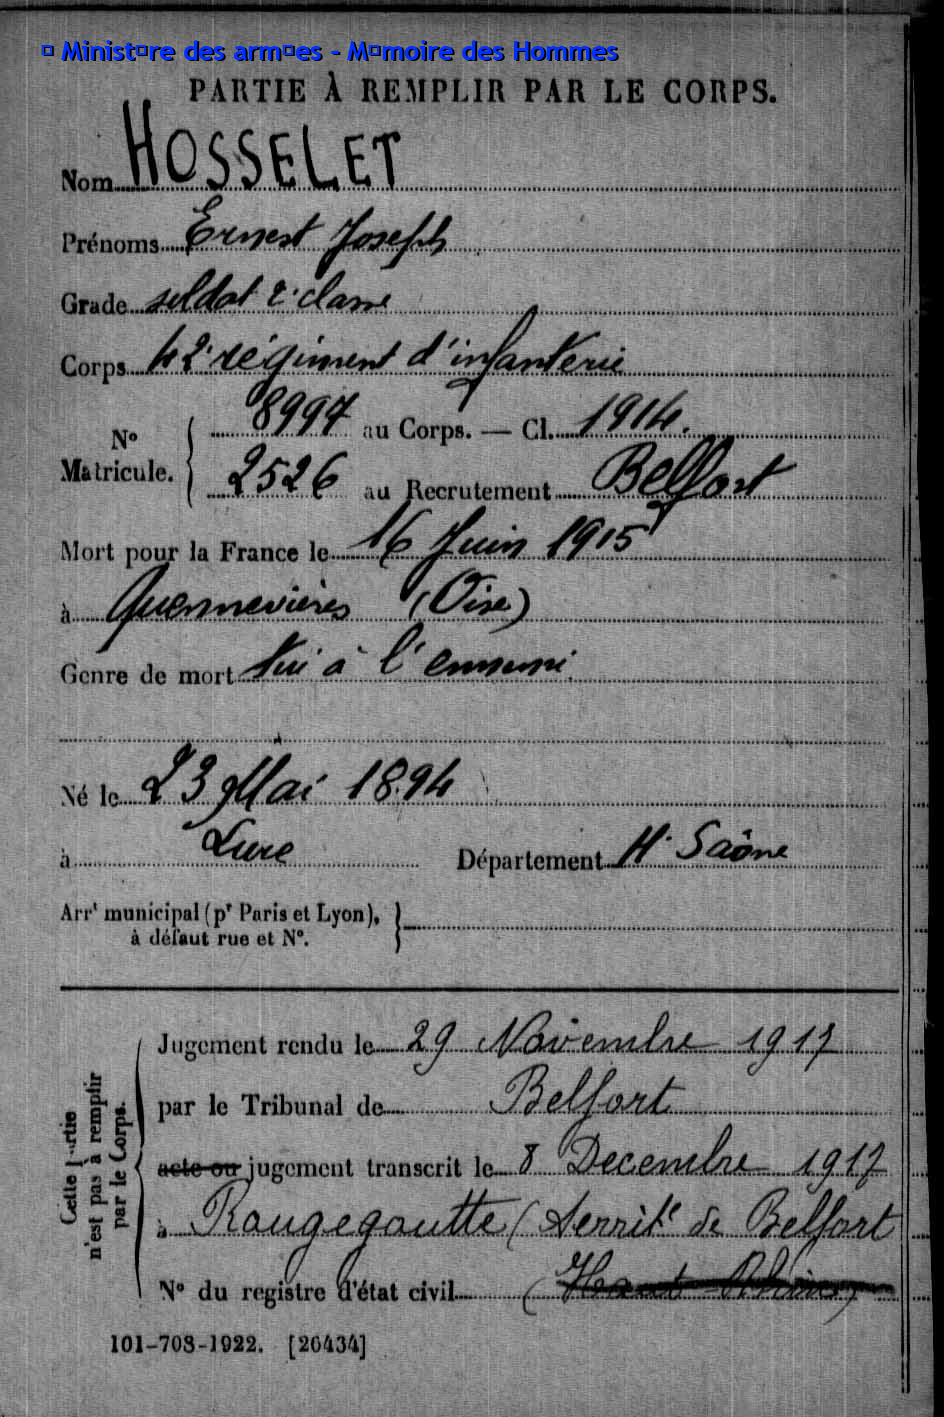 � Minist�re des arm�es - M�moire des Hommes
PARTIE À REMPLIR PAR LE CORPS.
Nom HOSSELET
Prénoms Ernest Joseph
Grade soldat 2e classe
Corps 42e régiment d'infanterie
N° Matricule. { 8997 au Corps. — Cl. 1914.
2526 au Recrutement Belfort
Mort pour la France le 16 Juin 1915
à Quennevières (Oise)
Genre de mort tué à l'ennemi.
Né le 23 Mai 1894
à Lure Département H. Saône
Arrt municipal (pr Paris et Lyon), }
à défaut rue et N°.
Cette partie n'est pas à remplir par le Corps.
Jugement rendu le 29 Novembre 1917
par le Tribunal de Belfort
acte ou jugement transcrit le 8 Decembre 1917
à Rougegoutte (Territe de Belfort
N° du registre d'état civil (Haut-Rhin)
101-708-1922. [26434]